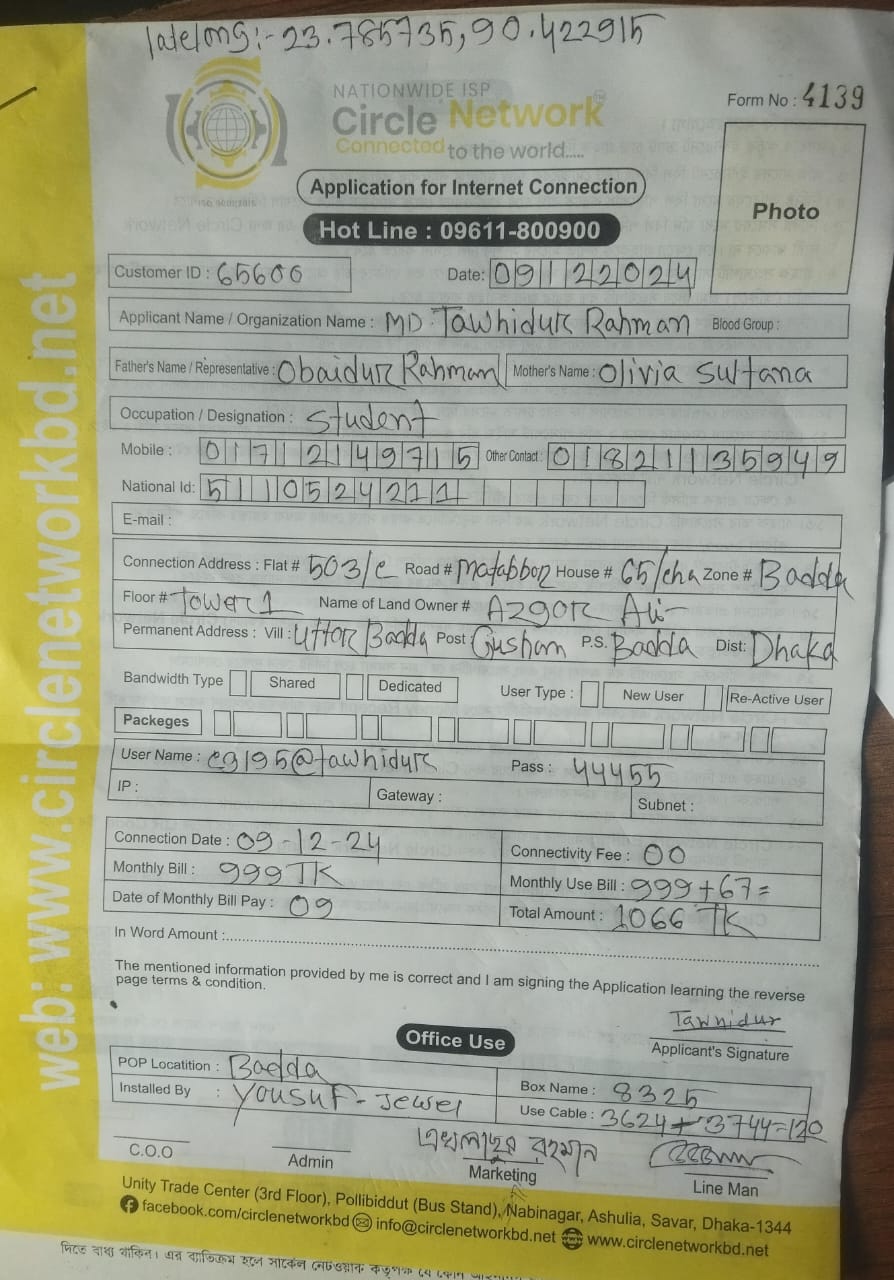 latelong:- 23.785735,90.422915
NATIONWIDE ISP
Circle Network
Connected to the world.....
Form No : 4139
ISO 9001:2015
Application for Internet Connection
Photo
Hot Line : 09611-800900
Customer ID : 65600 Date: 09122024
Applicant Name / Organization Name : MD. Tawhidur Rahman Blood Group :
Father's Name / Representative : Obaidur Rahman Mother's Name : Olivia Sultana
Occupation / Designation : Student
Mobile : 01712149715 Other Contact : 01821135949
National Id: 5110524211
E-mail :
Connection Address : Flat # 503/c Road # Matabbor House # 65/cha Zone # Badda
Floor # Tower 1 Name of Land Owner # Azgor Ali
Permanent Address : Vill : Uttor Badda Post : Gushan P.S. Badda Dist: Dhaka
Bandwidth Type Shared Dedicated User Type : New User Re-Active User
Packeges
User Name : eg195@tawhidur Pass : 44455
IP : Gateway : Subnet :
Connection Date : 09-12-24 Connectivity Fee : 00
Monthly Bill : 999 TK Monthly Use Bill : 999+67=
Date of Monthly Bill Pay : 09 Total Amount : 1066 TK
In Word Amount :
The mentioned information provided by me is correct and I am signing the Application learning the reverse
page terms & condition.
Tawhidur
Applicant's Signature
Office Use
POP Locatition : Badda Box Name : 8325
Installed By : Yousuf - Jewel Use Cable : 3624+3744=120
এখলাছুর রহমান
C.O.O Admin Marketing Line Man
Unity Trade Center (3rd Floor), Pollibiddut (Bus Stand), Nabinagar, Ashulia, Savar, Dhaka-1344
facebook.com/circlenetworkbd info@circlenetworkbd.net www.circlenetworkbd.net
দিতে বাধ্য থাকিব। এর ব্যতিক্রম হলে সার্কেল নেটওয়ার্ক কতৃপক্ষ যে কোন
web: www.circlenetworkbd.net